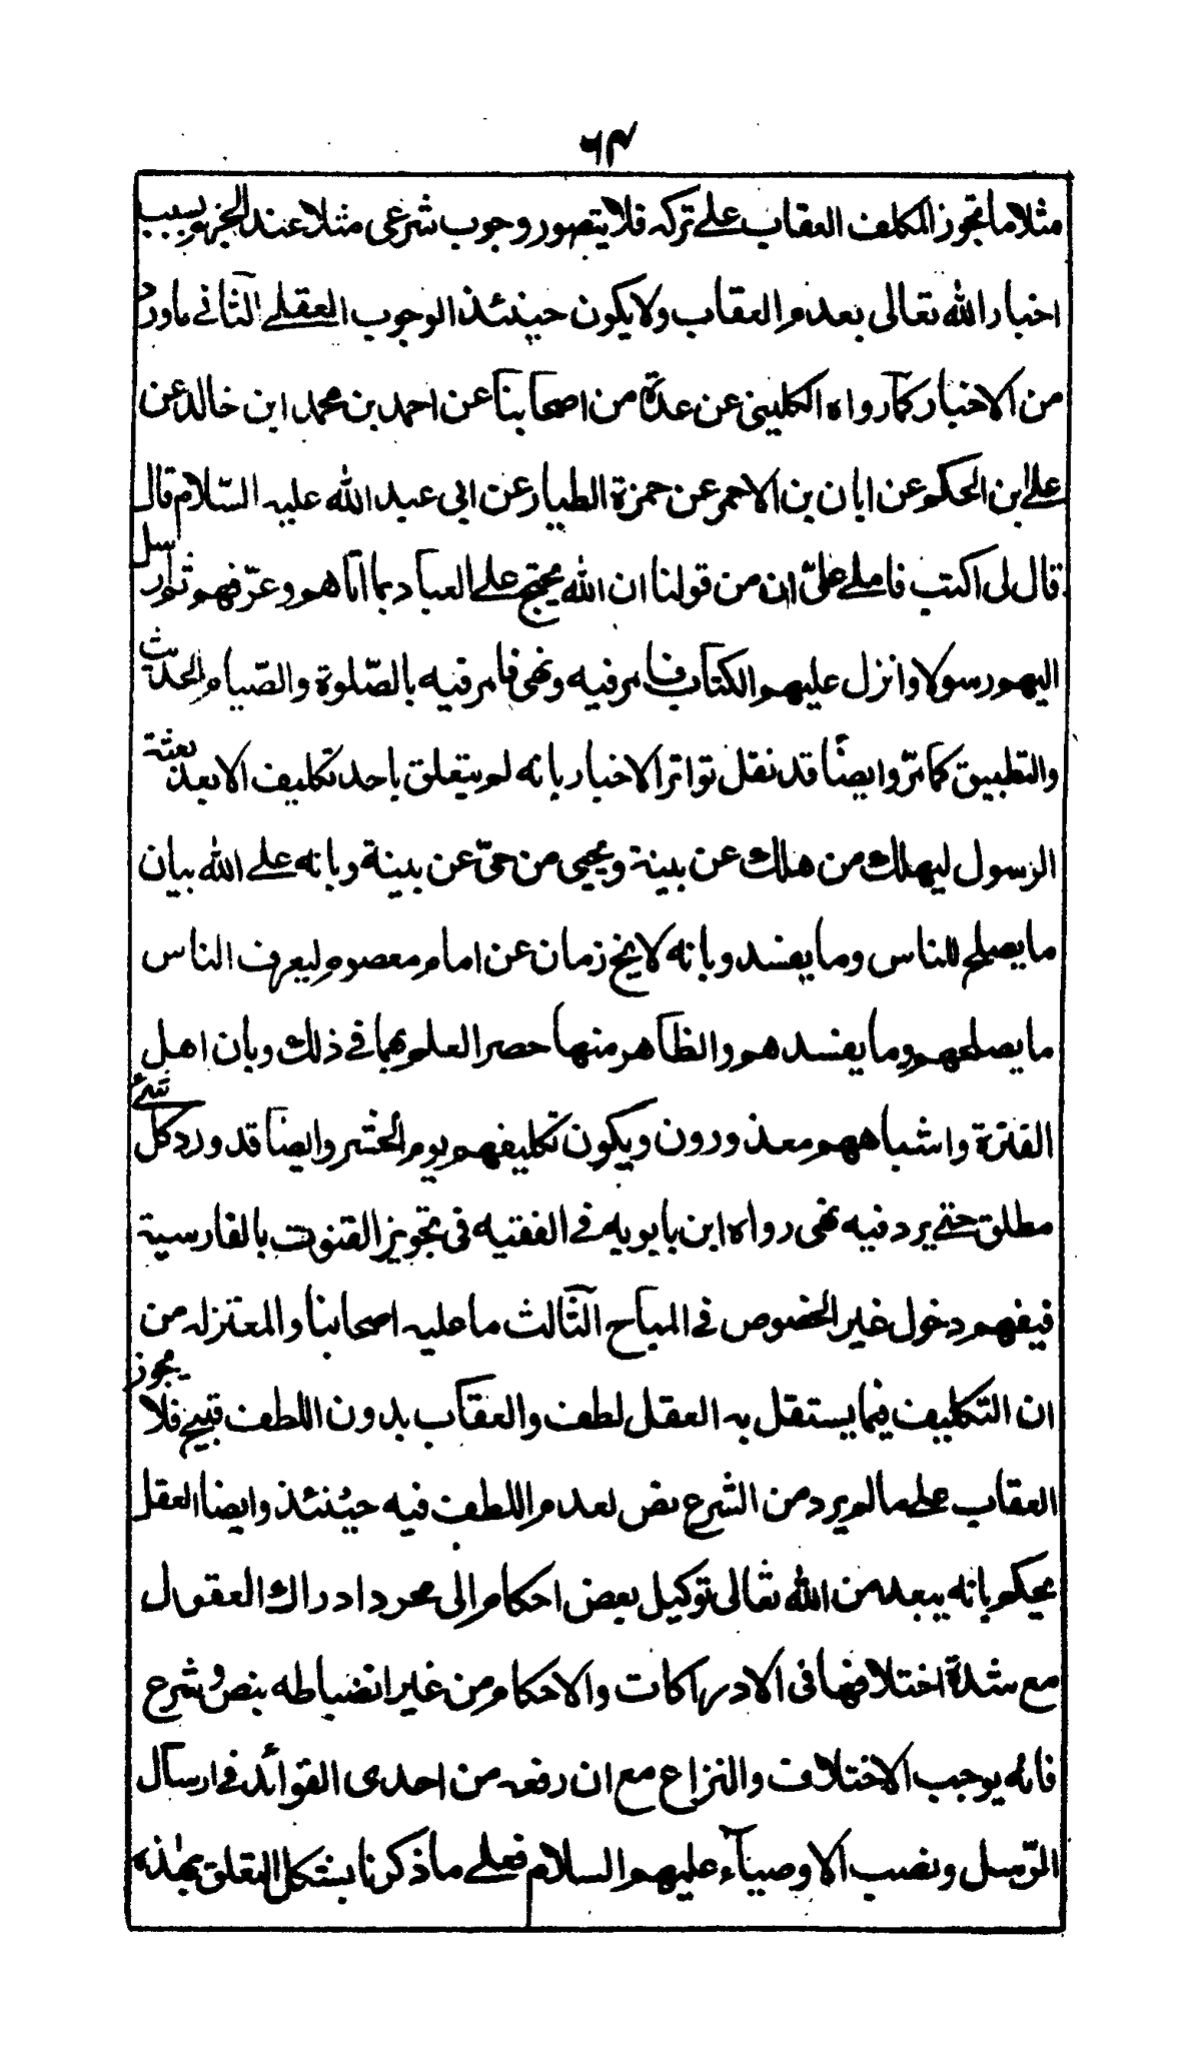 ٦٤
مثلا ما تجوز المكلف العقاب على تركه فلا يتصور وجوب شرعى مثلا عند الجزم بسبب
اخبار الله تعالى بعدم العقاب ولا يكون حينئذ الوجوب العقلے الثانے ماورد
من الاخبار كما رواه الكلينى عن عدة من اصحابنا عن احمد بن محمد ابن خالد عن
علے ابن الحكم عن ابان بن الاحمر عن حمزة الطيار عن ابى عبد الله عليه السّلام قال
قال لى اكتب فاملے علىّ ان من قولنا ان الله يحتج علے العباد بما اتاهم وعرّفهم ثم ارسل
اليهم رسولا وانزل عليهم الكتاب فامر فيه ونهى فامر فيه بالصّلوة والصّيام الحديث
والتطبيق كما مرّ وايضًا قد نقل تواتر الاخبار بانه لم يتعلق باحد تكليف الا بعد بعثة
الرسول ليهلك من هلك عن بينة ويحيى من حىّ عن بينة وبانه علے الله بيان
ما يصلح للناس وما يفسد وبانه لا يخ زمان عن امام معصوم ليعرف الناس
ما يصلحهم وما يفسدهم والظاهر منها حصر العلم بهما فے ذلك وبان اهل
الفترة واشباههم معذورون ويكون تكليفهم يوم الحشر وايضا قد ورد كل شئے
مطلق حتے يرد فيه نهى رواه ابن بابويه فے الفقيه فى تجويز القنوت بالفارسية
فيفهم دخول غير الخصوص فے المباح الثالث ما عليه اصحابنا والمعتزله من
ان التكليف فيما يستقل به العقل لطف والعقاب بدون اللطف قبيح فلا يجوز
العقاب على ما لم يرد من الشرع نص لعدم اللطف فيه حينئذ وايضا العقل
يحكم بانه يبعد من الله تعالى توكيل بعض احكام الى مجرد ادراك العقول
مع شدة اختلافها فى الادراكات والاحكام من غير انضباطه بنص و شرع
فانه يوجب الاختلاف والنزاع مع ان رفعه من احدى الفوائد فے ارسال
الرّسل ونصب الاوصياء عليهم السلام فعلے ما ذكرنا يشكل التعلق بهذه